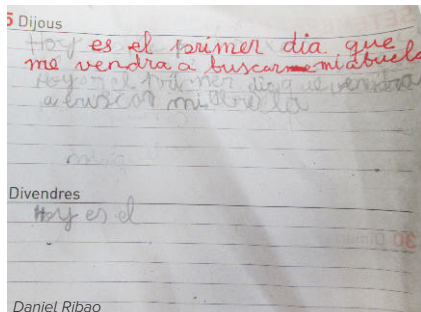 5 Dijous
Hoy es el primer dia que
me vendra a buscar mi abuela
Hoy es el primer dia que vendra
a buscar mi abuela
Divendres
Hoy es el
30
Daniel Ribao